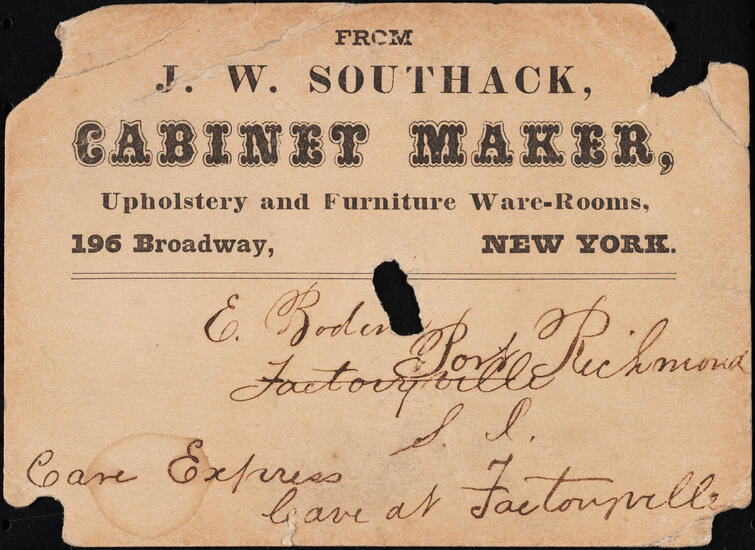 FROM
J. W. SOUTHACK,
CABINET MAKER,
Upholstery and Furniture Ware-Rooms,
196 Broadway, NEW YORK.
E. Boden
Port Richmond
Factoryville
S. I.
Care Express
leave at Factoryville